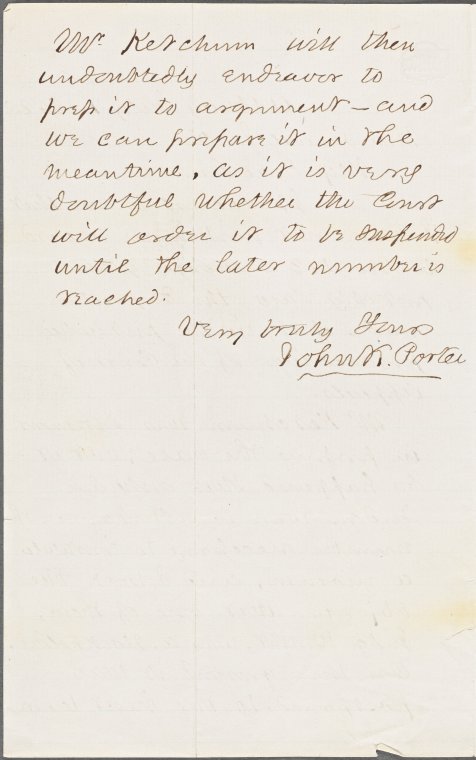 Mr. Ketchum will then
undoubtedly endeavor to
press it to argument — and
we can prepare it in the
meantime, as it is very
doubtful whether the Court
will order it to be suspended
until the later number is
reached.
Very truly Yours
John K. Porter